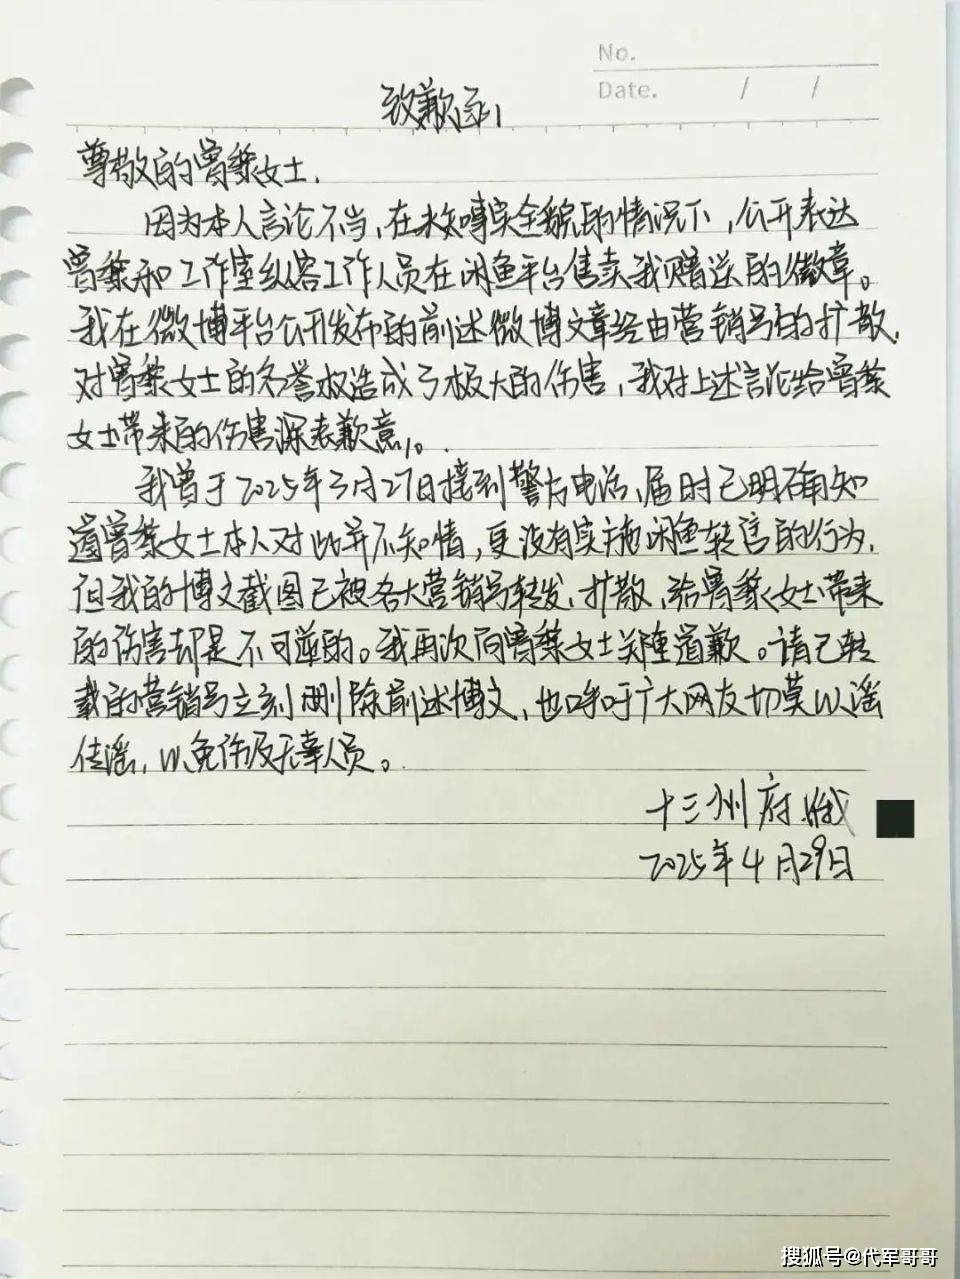 No.
Date. / /
致歉函
尊敬的曾黎女士,
因为本人言论不当,在未知事实全貌的情况下,公开表达
曾黎和工作室纵容工作人员在闲鱼平台售卖我赠送的徽章。
我在微博平台公开发布的前述微博文章经由营销号的扩散,
对曾黎女士的名誉权造成了极大的伤害,我对上述言论给曾黎
女士带来的伤害深表歉意。
我曾于2025年3月27日接到警方电话,届时已明确知
道曾黎女士本人对此并不知情,更没有实施闲鱼转售的行为,
但我的博文截图已被各大营销号转发、扩散,给曾黎女士带来
的伤害却是不可逆的。我再次向曾黎女士郑重道歉。请已转
载的营销号立刻删除前述博文,也呼吁广大网友切莫以谣
传谣,以免伤及无辜人员。
十三州府哦
2025年4月29日
搜狐号@代军哥哥